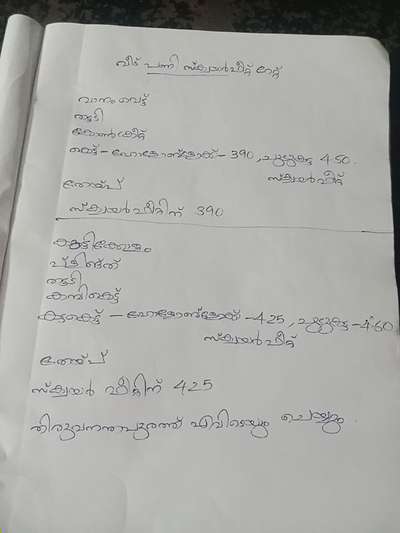 വീട് പണി സ്ക്വയർഫീറ്റ് റേറ്റ്
വാനം വെട്ട്
തട്ടടി
കോൺക്രീറ്റ്
കെട്ട് - ഹോളോബ്ലോക്ക് - 390, ചുടുകട്ട 450.
സ്ക്വയർഫീറ്റ്
തേയ്പ്
സ്ക്വയർ ഫീറ്റിന് 390
തട്ടടി
കമ്പികെട്ട്
കട്ടകെട്ട് - ഹോളോബ്ലോക്ക് - 425, ചുടുകട്ട - 460
സ്ക്വയർ ഫീറ്റ്
തേയ്പ്
സ്ക്വയർ ഫീറ്റിന് 425
തിരുവനന്തപുരത്ത് എവിടെയും ചെയ്യും.